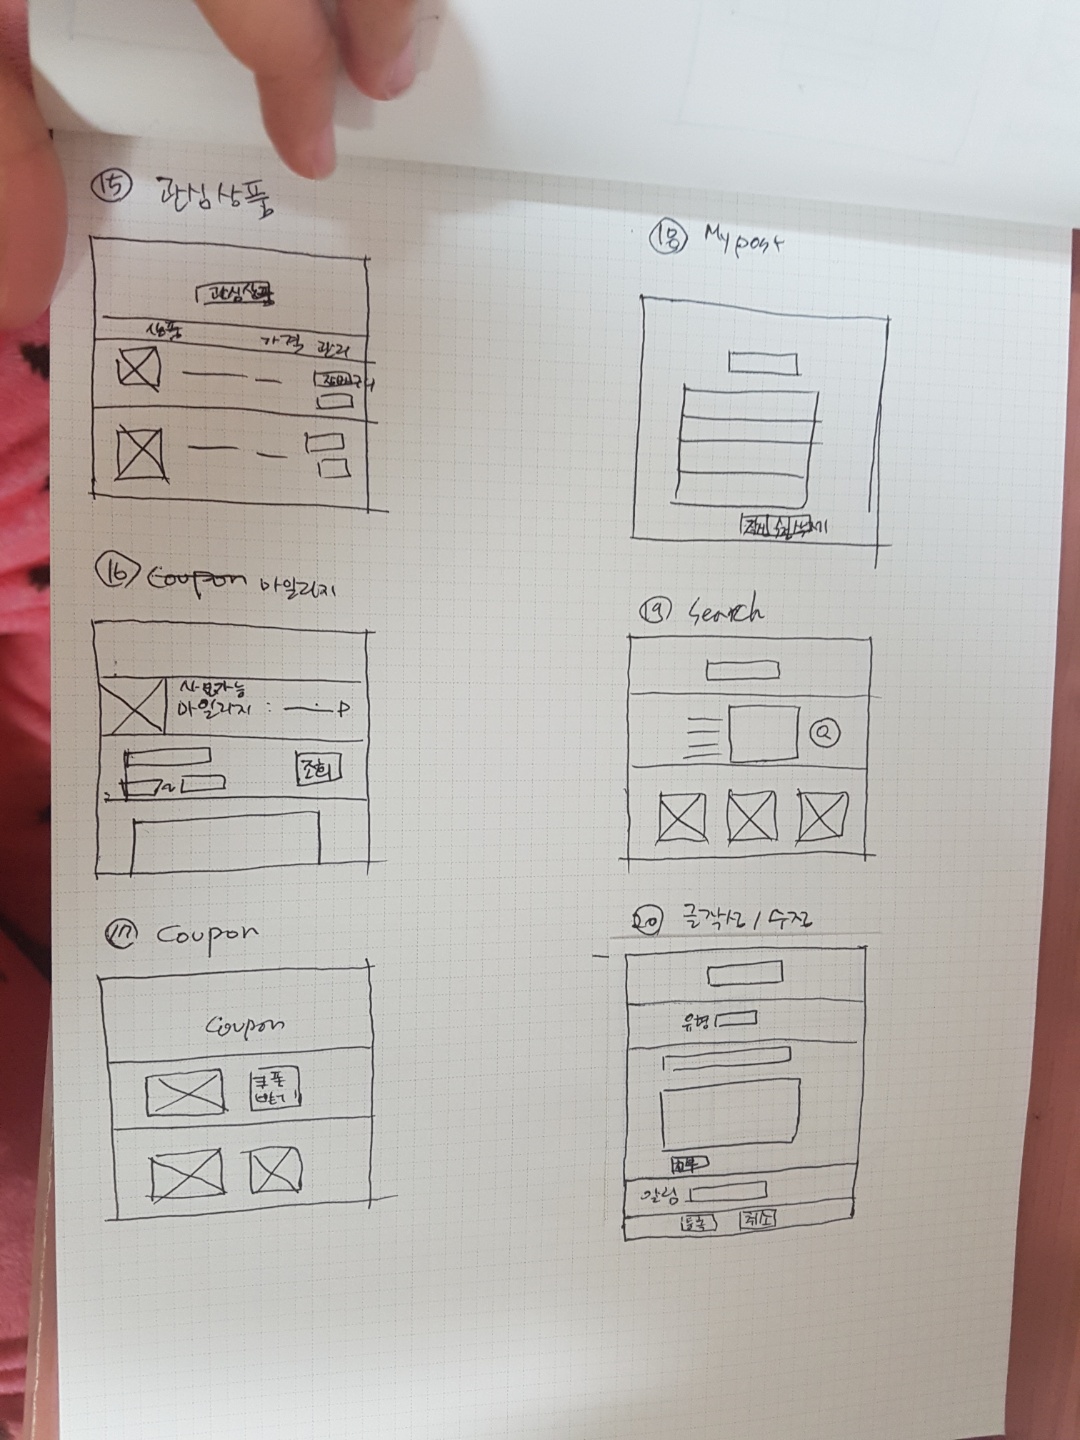 15 관심상품
관심상품
상품 가격 관리
16 Coupon 마일리지
사용가능
마일리지 : P
~ 조회
17 Coupon
Coupon
쿠폰
받기
18 My post
19 Search
20 글작성 / 수정
유형
첨부
알림
등록 취소